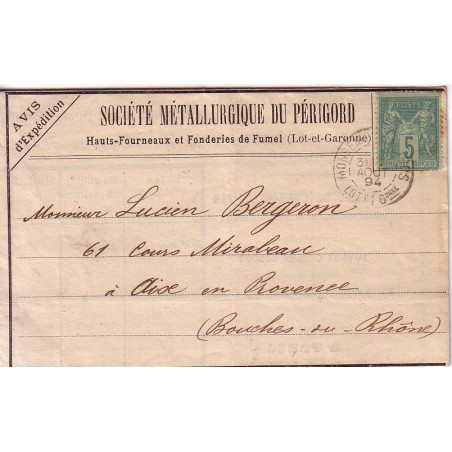 AVIS
d'Expédition
SOCIÉTÉ MÉTALLURGIQUE DU PÉRIGORD
Hauts-Fourneaux et Fonderies de Fumel (Lot-et-Garonne)
POSTE
5
AOUT
94
LOT ET Gnne
Monsieur Lucien Bergeron
61 Cours Mirabeau
à Aix en Provence
(Bouches-du-Rhône)